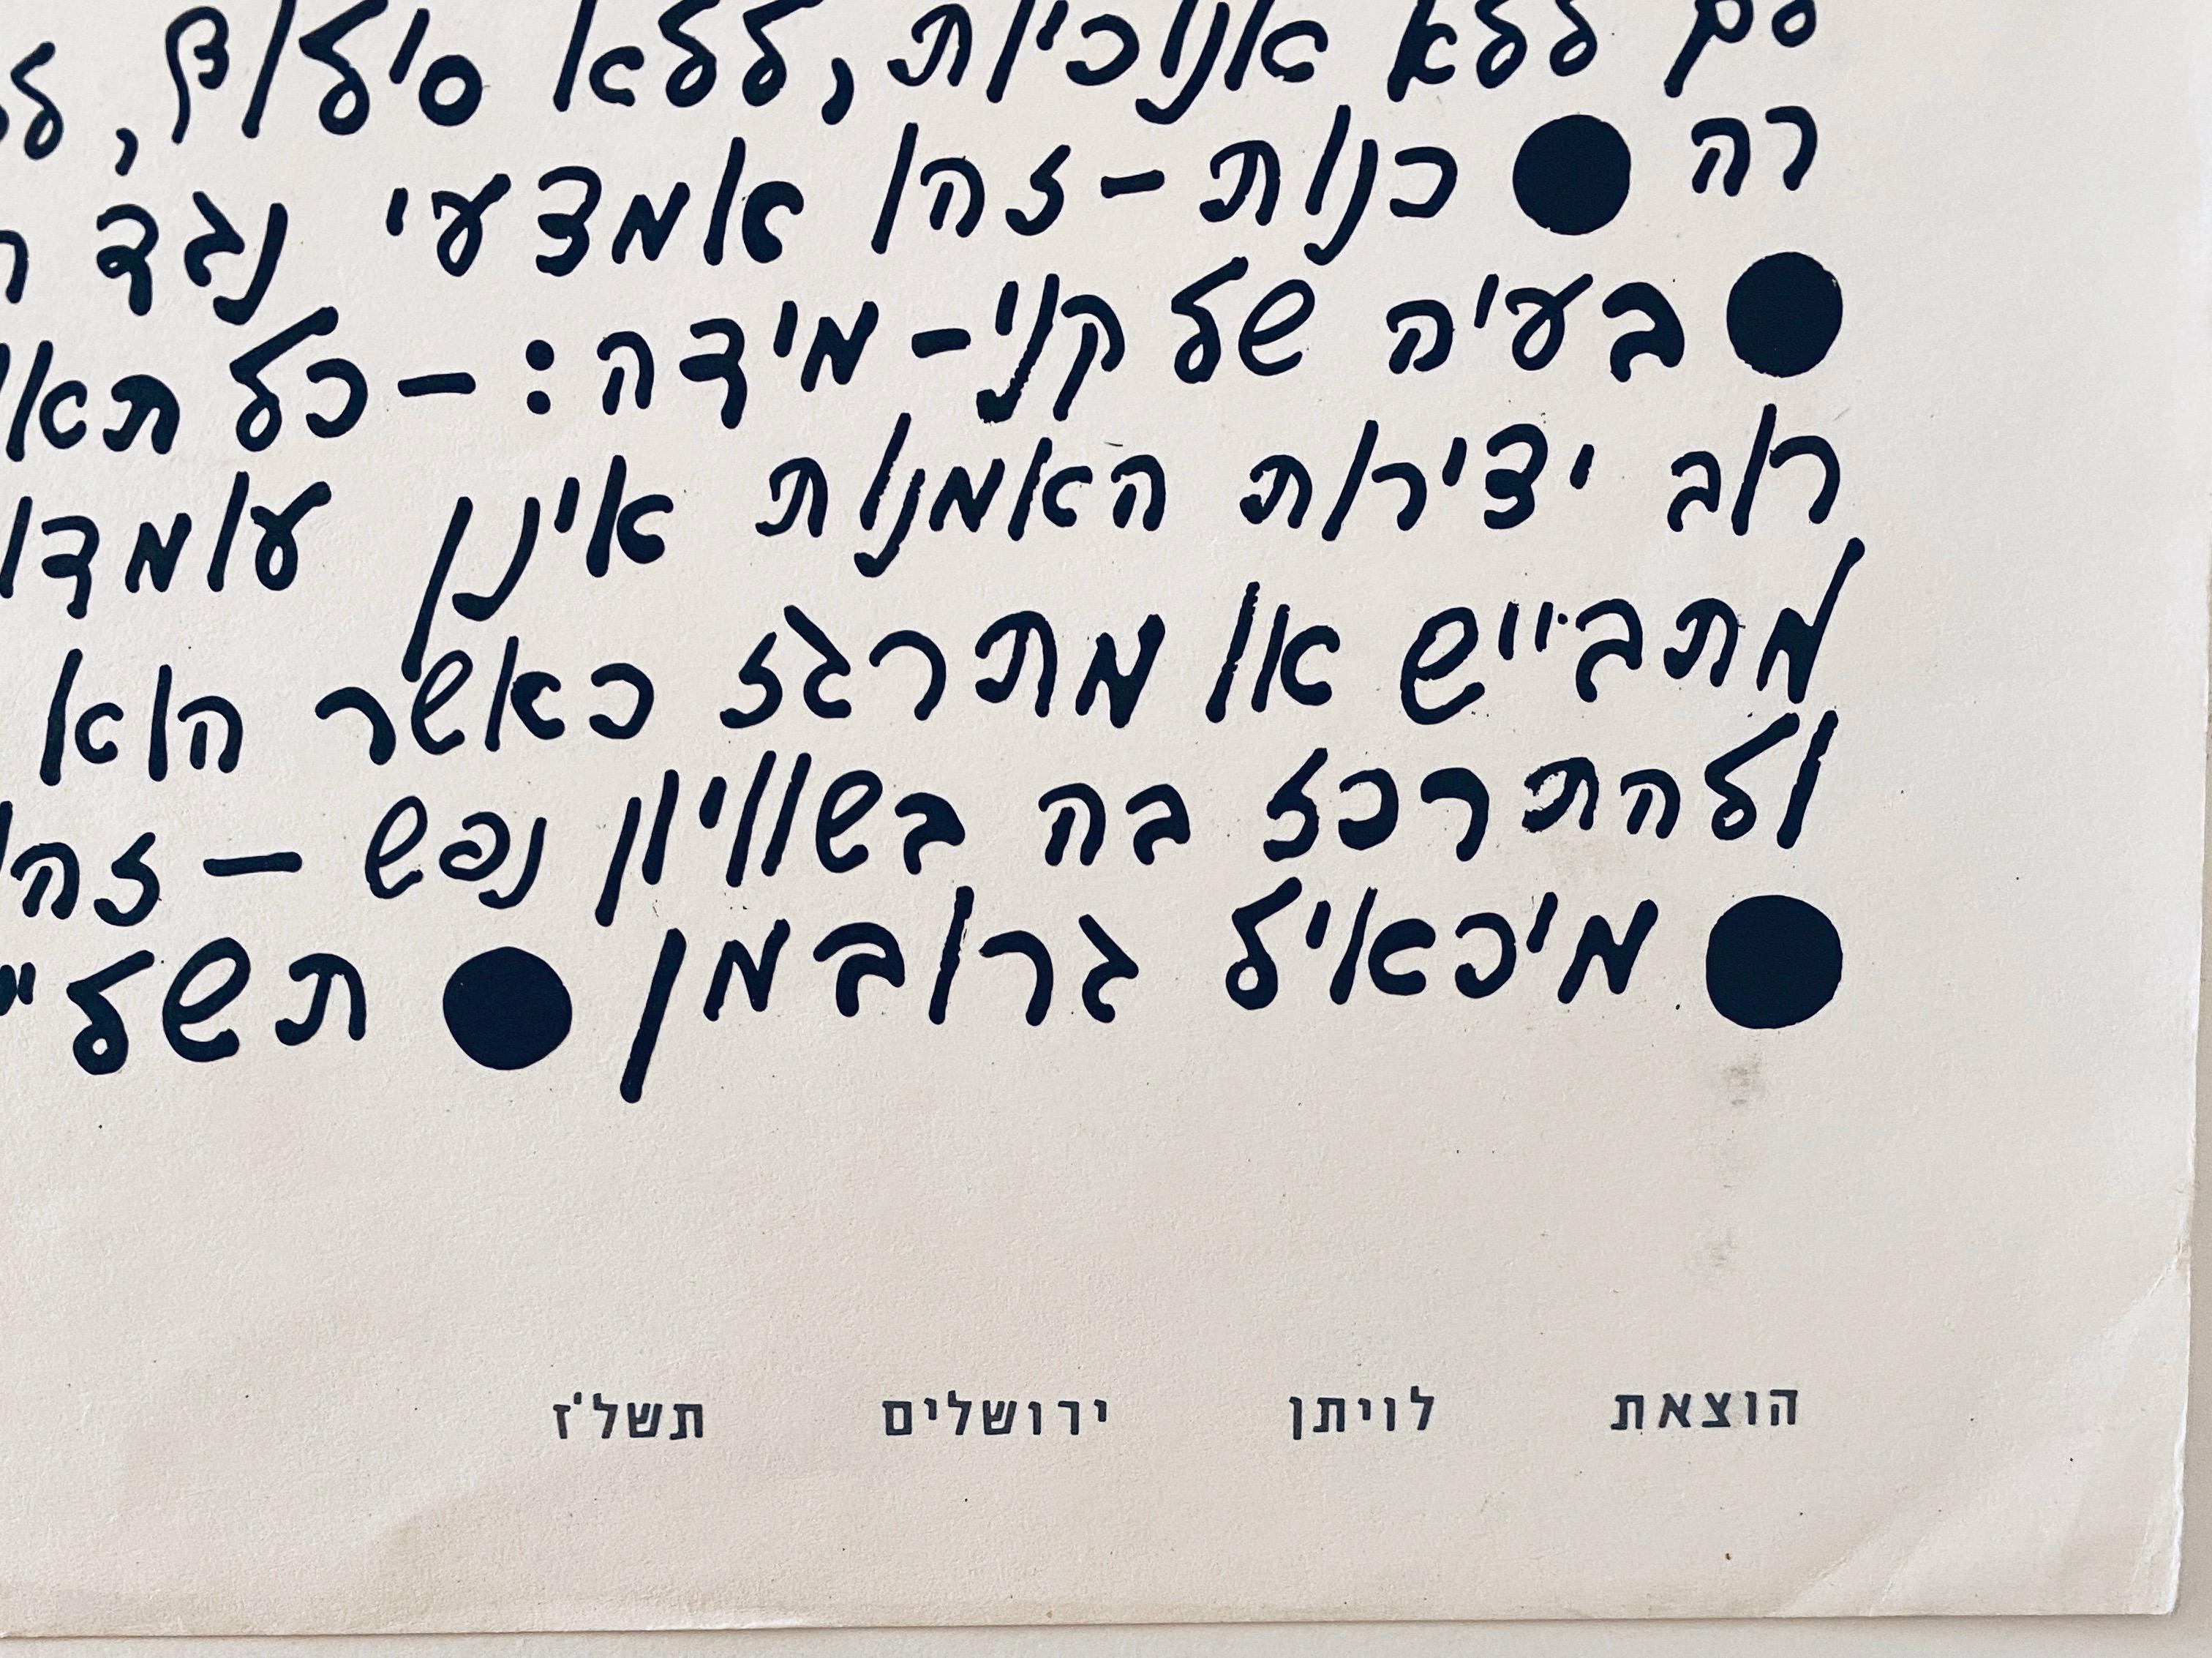 סם ללא אנוכיות, ללא סילוף,
רה ● כנות-זהו אמצעי נגד
● בעיה של קני-מידה: -כל
רוב יצירות האמנות אינן
מתבייש או מתרגז כאשר הוא
ולהתרכז בה בשוויון נפש — זהו
● מיכאיל גרובמן ● תשל"
הוצאת לויתן ירושלים תשל'ז